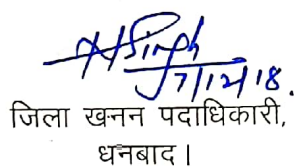 7/12/18.
जिला खनन पदाधिकारी,
धनबाद।